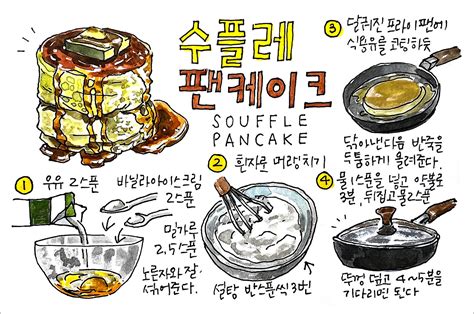 수플레
팬케이크
SOUFFLE
PANCAKE
1
우유 2스푼
바닐라아이스크림
2스푼
밀가루
2.5스푼
노른자와 잘
섞어준다.
2 흰자룬 머랭치기
설탕 반스푼씩 3번
3 달궈진 프라이팬에
식용유를 코팅하듯
닦아낸다음 반죽을
두툼하게 올려준다.
4 물1스푼을 넣고 약불로
3분, 뒤집고물2스푼
뚜껑 덮고 4~5분을
기다리면 된다